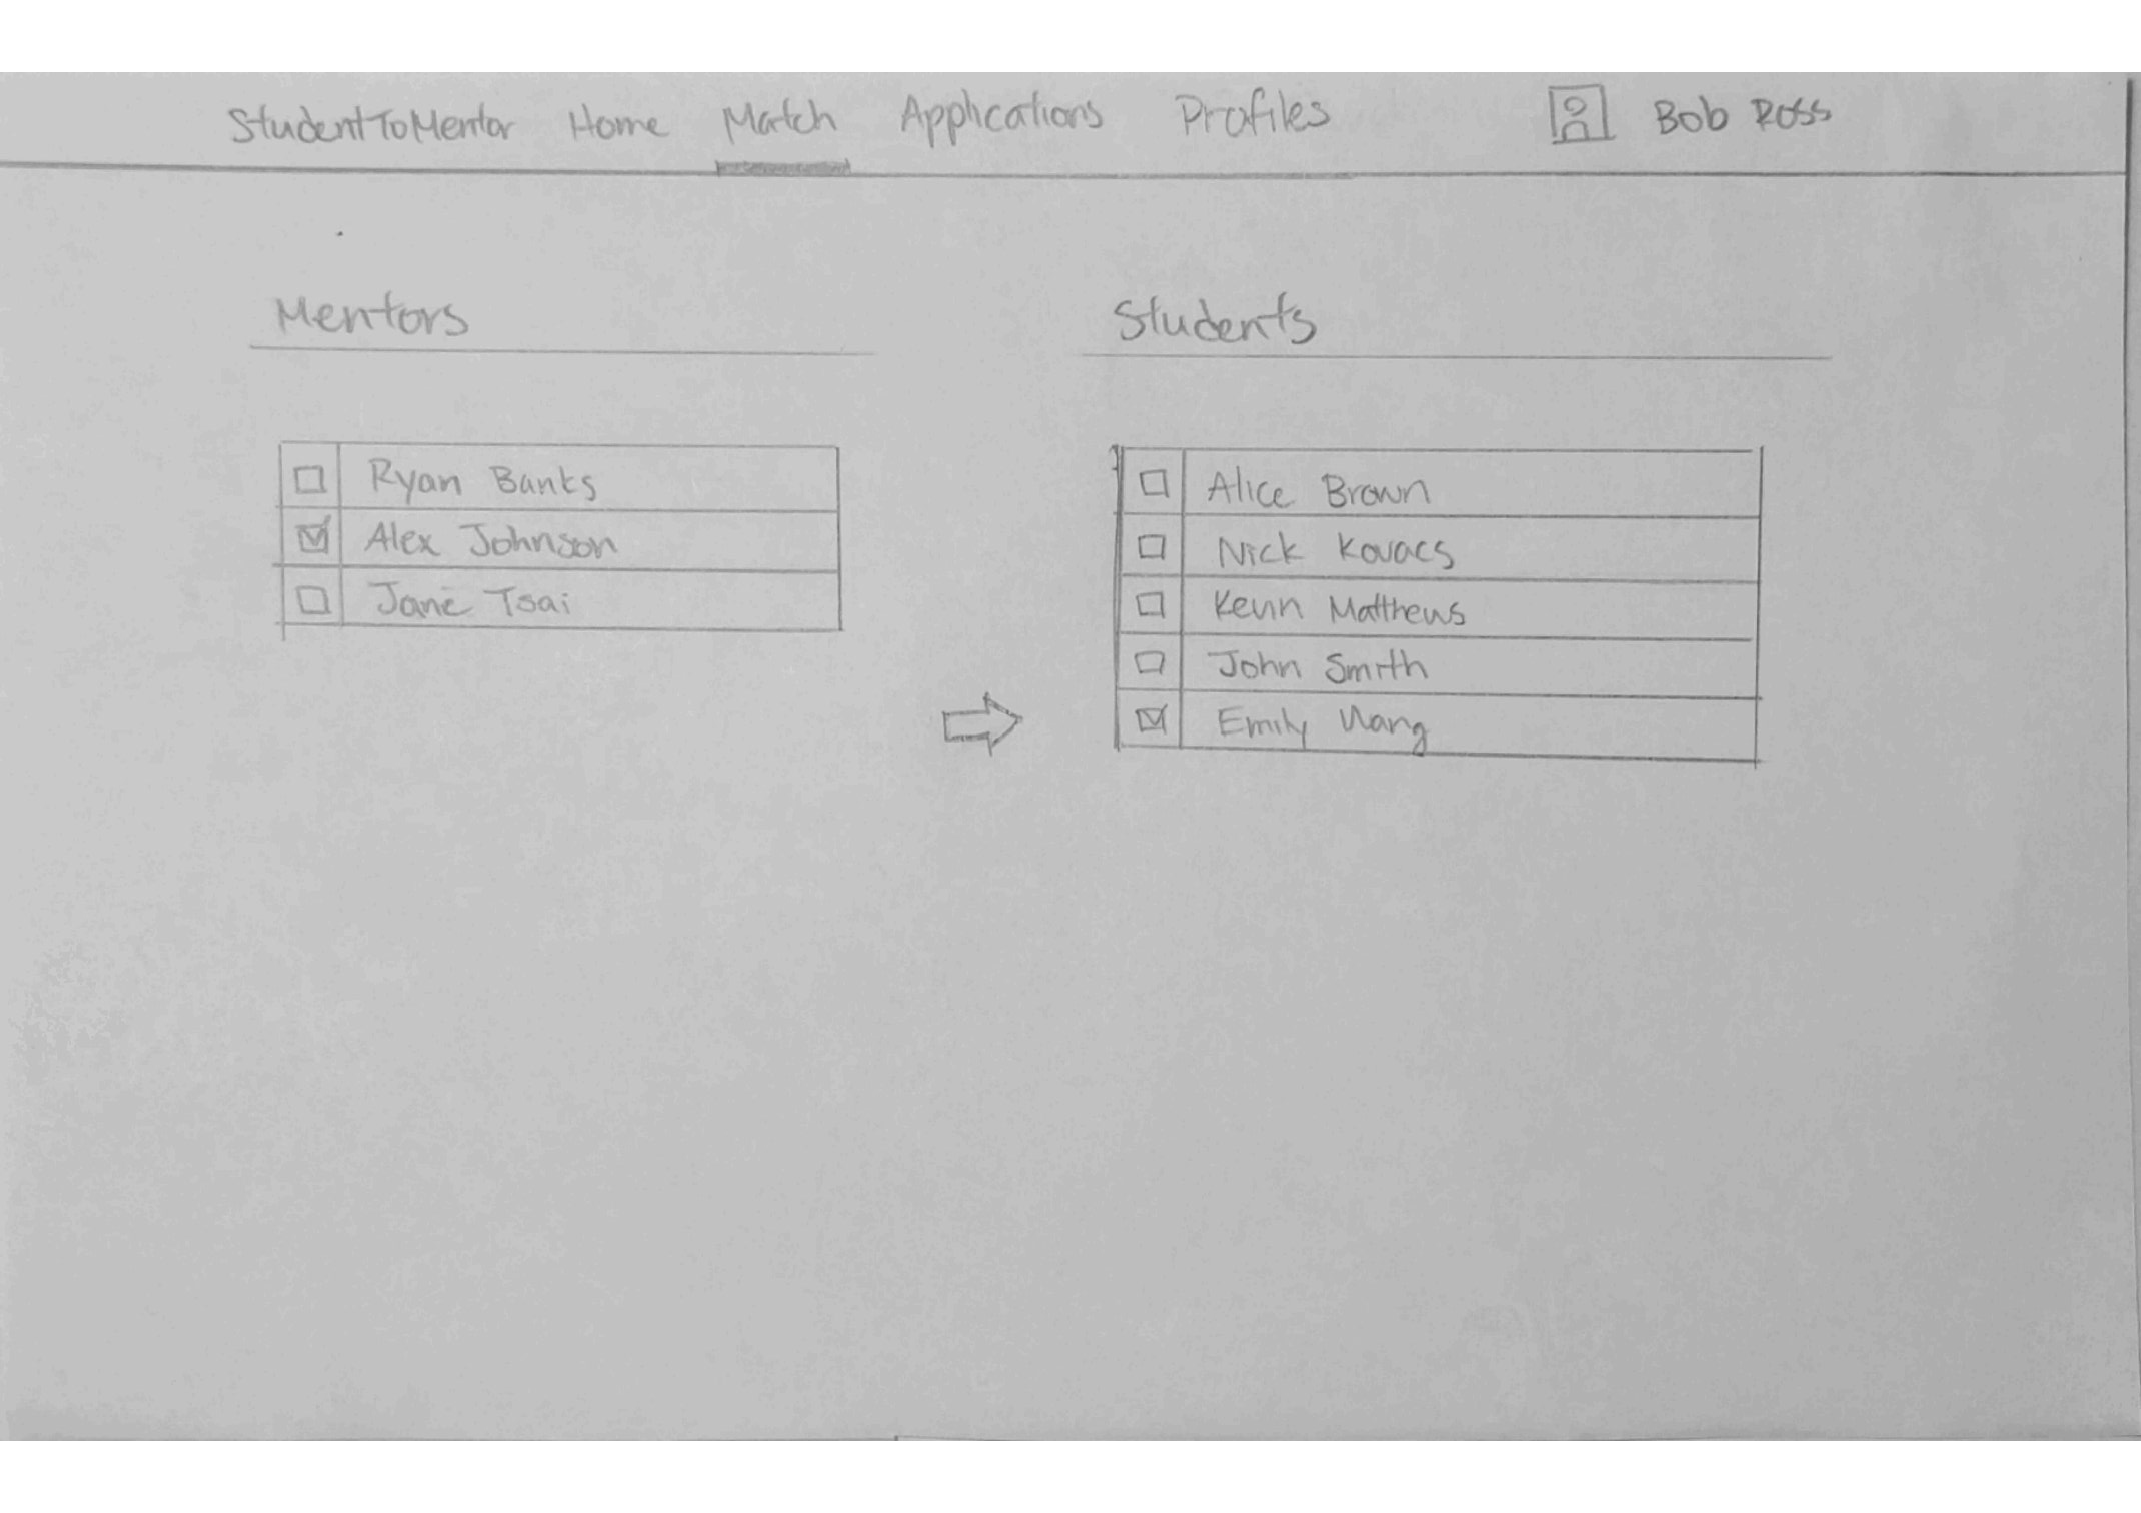 StudentToMentor Home Match Applications Profiles Bob Ross
Mentors
Ryan Banks
Alex Johnson
Jane Tsai
Students
Alice Brown
Nick Kovacs
Kevin Matthews
John Smith
Emily Wang